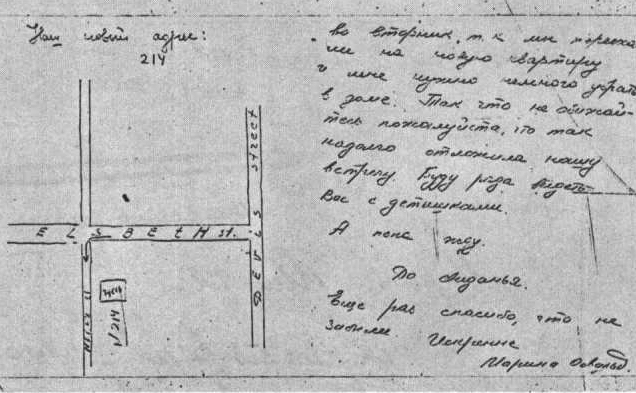 Наш новый адрес:
214
ELSBETH St.
DEVILS street
здесь
№ 214
во вторник, т.к. мы перееха
ли на новую квартиру
и мне нужно немного убрать
в доме. Так что не обижай-
тесь пожалуйста, что так
надолго отложила нашу
встречу. Буду рада видеть
Вас с детишками.
А пока жду.
До свиданья.
Еще раз спасибо, что не
забыли
Искренне
Марина Освальд.